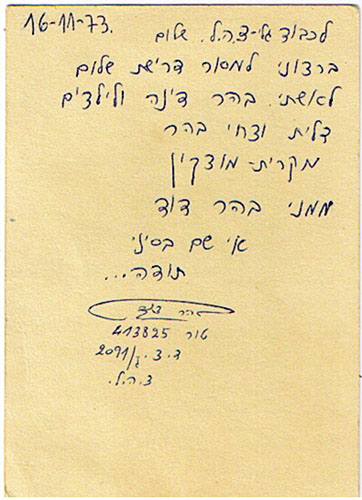 16-11-73.
לכבוד גלי-צ.ה.ל. שלום
ברצוני למסור דרישת שלום
לאשתי. בהר דינה ולילדים
דלית וצחי בהר
מקרית-מוצקין
ממני בהר דוד
אי שם בסיני
תודה...
בהר דוד
טור 413825
ד.צ. 2091/
צ.ה.ל.